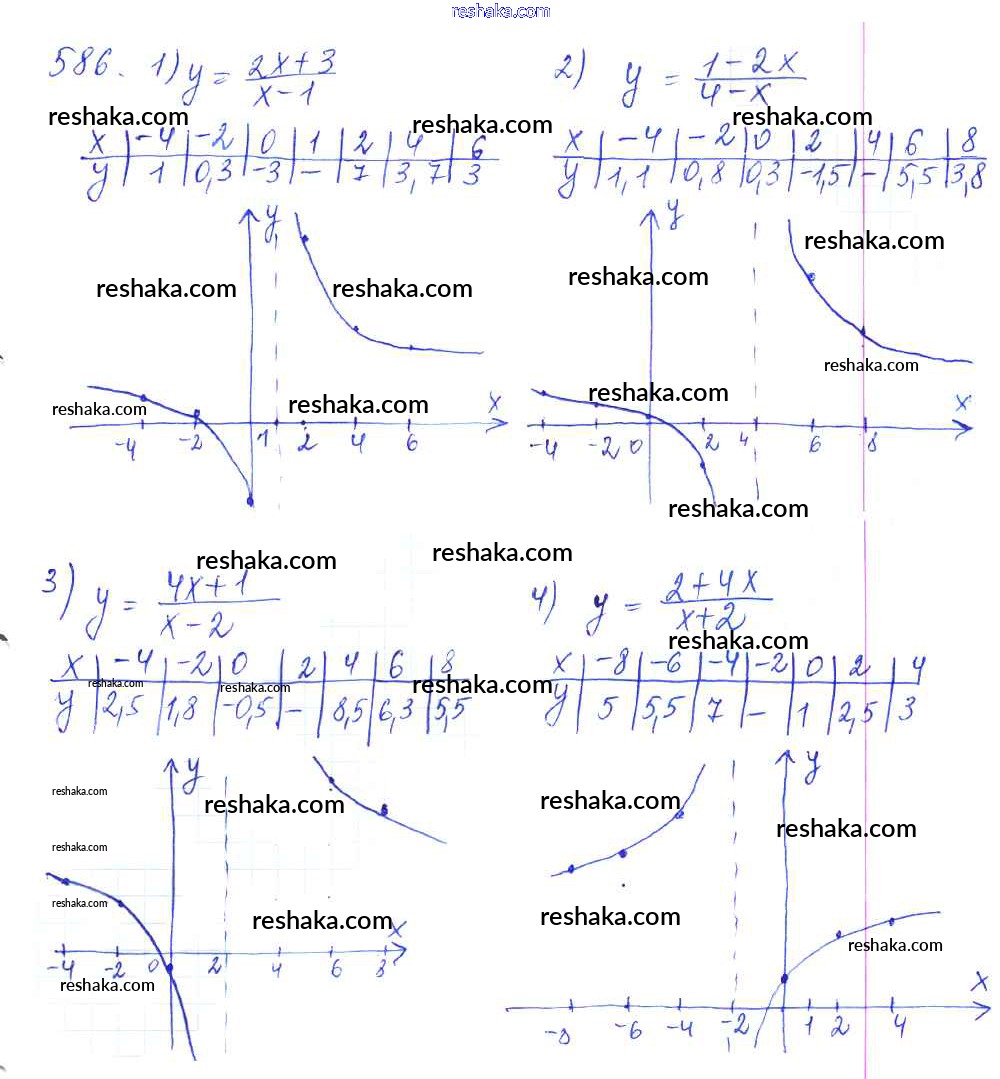 reshaka.com
586. 1) y = (2x+3)/(x-1)
x | -4 | -2 | 0 | 1 | 2 | 4 | 6
y | 1 | 0,3 | -3 | - | 7 | 3,7 | 3
2) y = (1-2x)/(4-x)
x | -4 | -2 | 0 | 2 | 4 | 6 | 8
y | 1,1 | 0,8 | 0,3 | -1,5 | - | 5,5 | 3,8
reshaka.com reshaka.com reshaka.com
y
reshaka.com reshaka.com
reshaka.com reshaka.com x
-4 -2 1 2 4 6
y
reshaka.com
reshaka.com
reshaka.com
reshaka.com x
-4 -2 0 2 4 6 8
reshaka.com
reshaka.com reshaka.com
3) y = (4x+1)/(x-2)
x | -4 | -2 | 0 | 2 | 4 | 6 | 8
y | 2,5 | 1,8 | -0,5 | - | 8,5 | 6,3 | 5,5
reshaka.com reshaka.com reshaka.com
4) y = (2+4x)/(x+2)
reshaka.com
x | -8 | -6 | -4 | -2 | 0 | 2 | 4
y | 5 | 5,5 | 7 | - | 1 | 2,5 | 3
y
reshaka.com reshaka.com
reshaka.com
reshaka.com reshaka.com x
-4 -2 0 2 4 6 8
reshaka.com
y
reshaka.com
reshaka.com
reshaka.com
reshaka.com
x
-8 -6 -4 -2 1 2 4